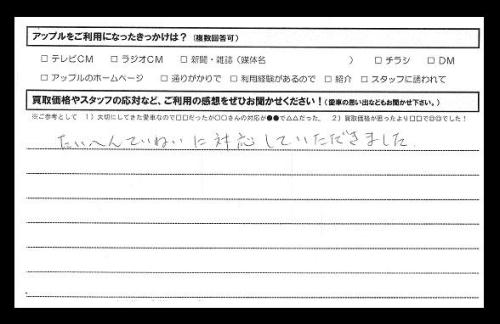 アップルをご利用になったきっかけは？（複数回答可）
□ テレビCM □ ラジオCM □ 新聞・雑誌（媒体名 ） □ チラシ □ DM
□ アップルのホームページ □ 通りがかりで □ 利用経験があるので □ 紹介 □ スタッフに誘われて
買取価格やスタッフの応対など、ご利用の感想をぜひお聞かせください！（愛車の思い出などもお聞かせ下さい。）
※ご参考として 1）大切にしてきた愛車なので□□だったが○○さんの対応が●●で△△だった。 2）買取価格が思ったより□□で◎◎でした！
たいへんていねいに対応していただきました